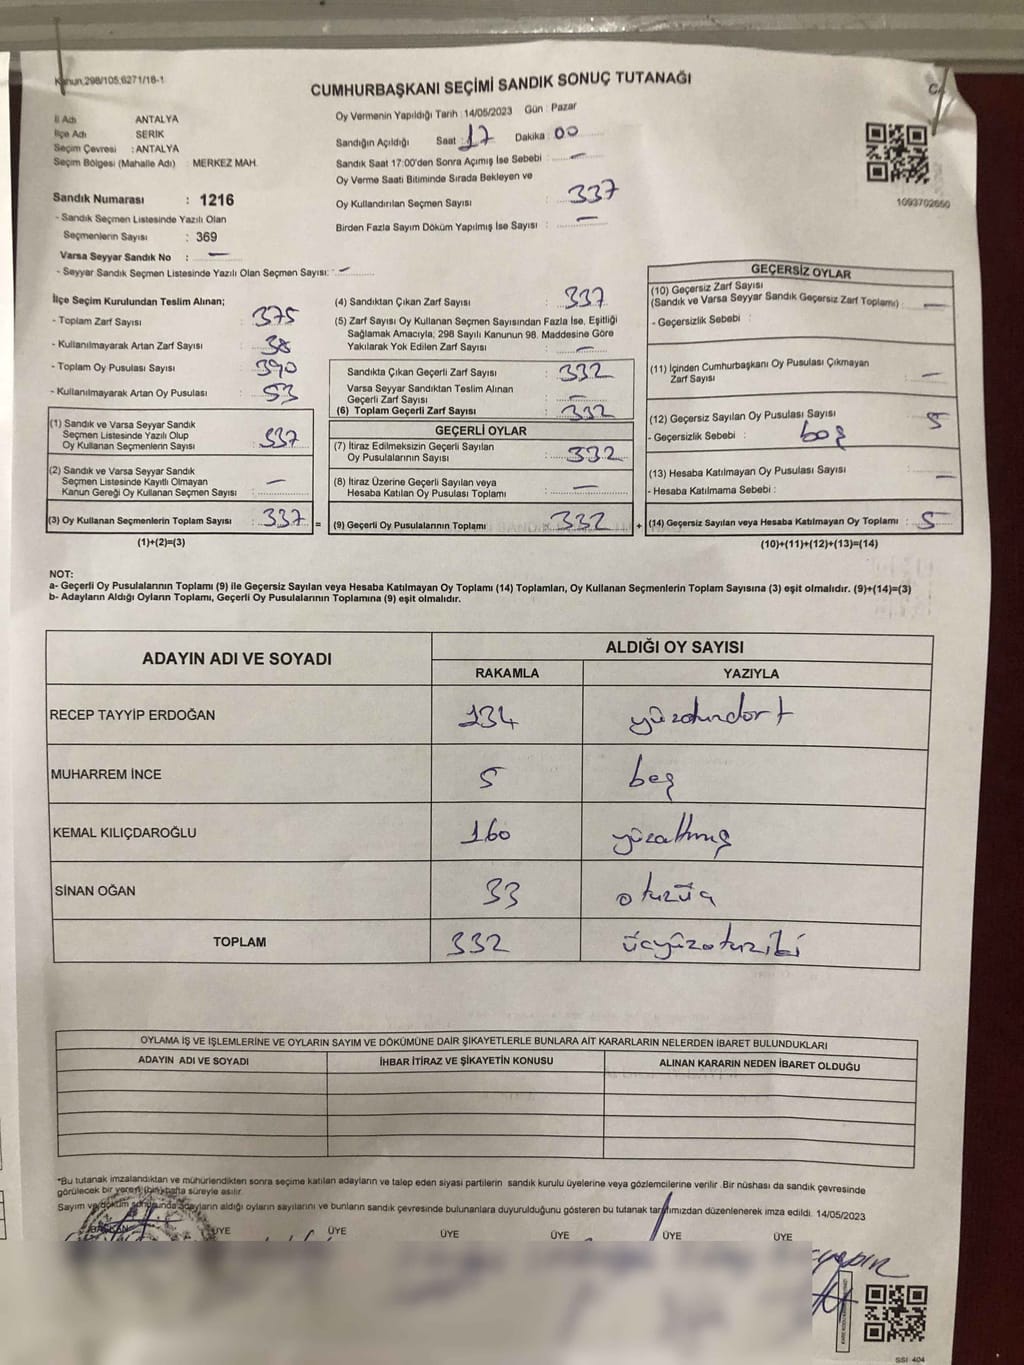 Kanun.298/105,6271/18-1
CUMHURBAŞKANI SEÇİMİ SANDIK SONUÇ TUTANAĞI
İl Adı ANTALYA
İlçe Adı SERİK
Seçim Çevresi : ANTALYA
Seçim Bölgesi (Mahalle Adı) : MERKEZ MAH.
Sandık Numarası : 1216
- Sandık Seçmen Listesinde Yazılı Olan
Seçmenlerin Sayısı : 369
Varsa Seyyar Sandık No : —
- Seyyar Sandık Seçmen Listesinde Yazılı Olan Seçmen Sayısı: —
Oy Vermenin Yapıldığı Tarih : 14/05/2023 Gün : Pazar
Sandığın Açıldığı Saat : 17 Dakika : 00
Sandık Saat 17:00'den Sonra Açımış İse Sebebi : —
Oy Verme Saati Bitiminde Sırada Bekleyen ve
Oy Kullandırılan Seçmen Sayısı : 337
Birden Fazla Sayım Döküm Yapılmış İse Sayısı : —
1093702650
İlçe Seçim Kurulundan Teslim Alınan;
- Toplam Zarf Sayısı : 375
- Kullanılmayarak Artan Zarf Sayısı : 38
- Toplam Oy Pusulası Sayısı : 390
- Kullanılmayarak Artan Oy Pusulası : 53
(1) Sandık ve Varsa Seyyar Sandık
Seçmen Listesinde Yazılı Olup
Oy Kullanan Seçmenlerin Sayısı : 337
(2) Sandık ve Varsa Seyyar Sandık
Seçmen Listesinde Kayıtlı Olmayan
Kanun Gereği Oy Kullanan Seçmen Sayısı : —
(3) Oy Kullanan Seçmenlerin Toplam Sayısı : 337 =
(1)+(2)=(3)
(4) Sandıktan Çıkan Zarf Sayısı : 337
(5) Zarf Sayısı Oy Kullanan Seçmen Sayısından Fazla İse, Eşitliği
Sağlamak Amacıyla; 298 Sayılı Kanunun 98. Maddesine Göre
Yakılarak Yok Edilen Zarf Sayısı : —
Sandıkta Çıkan Geçerli Zarf Sayısı : 332
Varsa Seyyar Sandıktan Teslim Alınan
Geçerli Zarf Sayısı : —
(6) Toplam Geçerli Zarf Sayısı : 332
GEÇERLİ OYLAR
(7) İtiraz Edilmeksizin Geçerli Sayılan
Oy Pusulalarının Sayısı : 332
(8) İtiraz Üzerine Geçerli Sayılan veya
Hesaba Katılan Oy Pusulası Toplamı : —
(9) Geçerli Oy Pusulalarının Toplamı : 332 +
GEÇERSİZ OYLAR
(10) Geçersiz Zarf Sayısı
(Sandık ve Varsa Seyyar Sandık Geçersiz Zarf Toplamı) : —
- Geçersizlik Sebebi :
(11) İçinden Cumhurbaşkanı Oy Pusulası Çıkmayan
Zarf Sayısı : —
(12) Geçersiz Sayılan Oy Pusulası Sayısı : 5
- Geçersizlik Sebebi : boş
(13) Hesaba Katılmayan Oy Pusulası Sayısı : —
- Hesaba Katılmama Sebebi :
(14) Geçersiz Sayılan veya Hesaba Katılmayan Oy Toplamı : 5
(10)+(11)+(12)+(13)=(14)
NOT:
a- Geçerli Oy Pusulalarının Toplamı (9) ile Geçersiz Sayılan veya Hesaba Katılmayan Oy Toplamı (14) Toplamları, Oy Kullanan Seçmenlerin Toplam Sayısına (3) eşit olmalıdır. (9)+(14)=(3)
b- Adayların Aldığı Oyların Toplamı, Geçerli Oy Pusulalarının Toplamına (9) eşit olmalıdır.
ADAYIN ADI VE SOYADI ALDIĞI OY SAYISI
RAKAMLA YAZIYLA
RECEP TAYYİP ERDOĞAN 134 yüzotuzdört
MUHARREM İNCE 5 beş
KEMAL KILIÇDAROĞLU 160 yüzaltmış
SİNAN OĞAN 33 otuzüç
TOPLAM 332 üçyüzotuziki
OYLAMA İŞ VE İŞLEMLERİNE VE OYLARIN SAYIM VE DÖKÜMÜNE DAİR ŞİKAYETLERLE BUNLARA AİT KARARLARIN NELERDEN İBARET BULUNDUKLARI
ADAYIN ADI VE SOYADI İHBAR İTİRAZ VE ŞİKAYETİN KONUSU ALINAN KARARIN NEDEN İBARET OLDUĞU
*Bu tutanak imzalandıktan ve mühürlendikten sonra seçime katılan adayların ve talep eden siyasi partilerin sandık kurulu üyelerine veya gözlemcilerine verilir .Bir nüshası da sandık çevresinde
görülecek bir yere (bir) hafta süreyle asılır.
Sayım ve döküm sonunda adayların aldığı oyların sayılarını ve bunların sandık çevresinde bulunanlara duyurulduğunu gösteren bu tutanak tarafımızdan düzenlenerek imza edildi. 14/05/2023
BAŞKAN ÜYE ÜYE ÜYE ÜYE ÜYE ÜYE
SSI 404